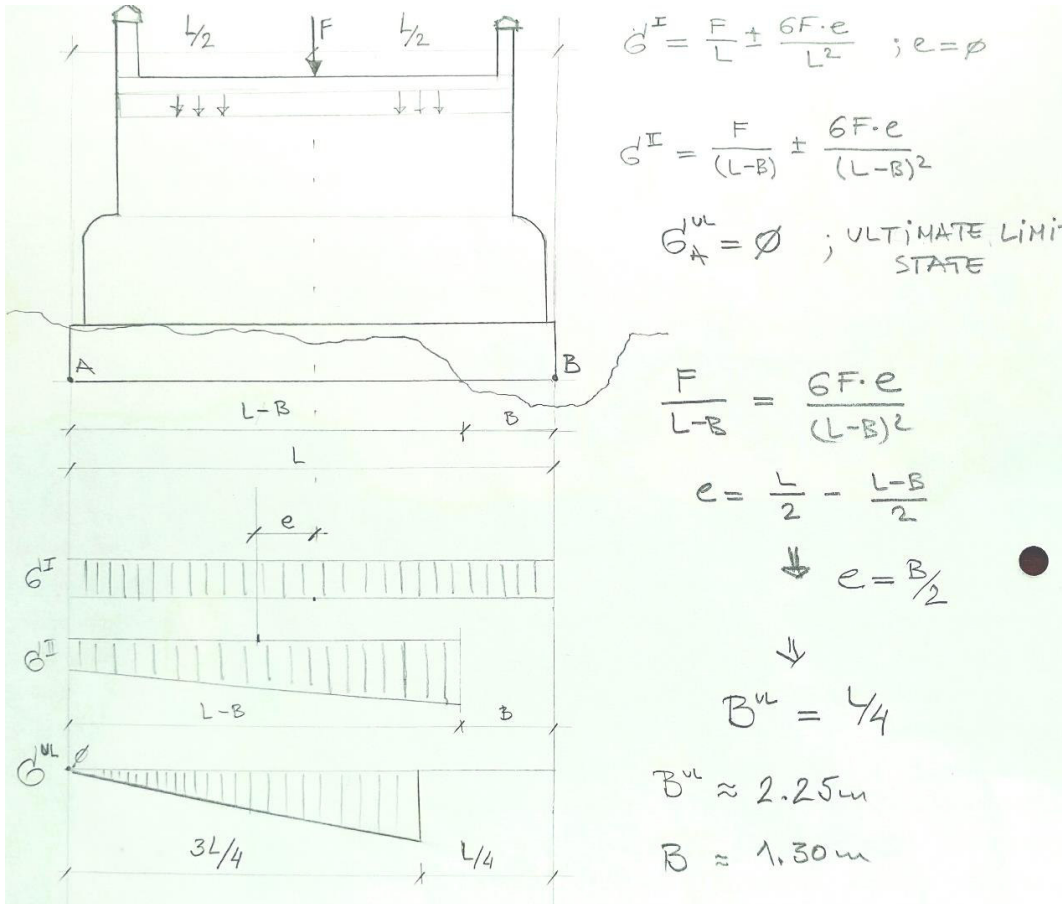 L/2 F L/2
A B
L-B B
L
e
σ^I
σ^II
L-B B
σ^UL ∅
3L/4 L/4
σ^I = F/L ± 6F·e/L² ; e=∅
σ^II = F/(L-B) ± 6F·e/(L-B)²
σ_A^UL = ∅ ; ULTIMATE LIMI
STATE
F/(L-B) = 6F·e/(L-B)²
e = L/2 - (L-B)/2
⇓ e = B/2
⇓
B^UL = L/4
B^UL ≈ 2.25m
B ≈ 1.30m